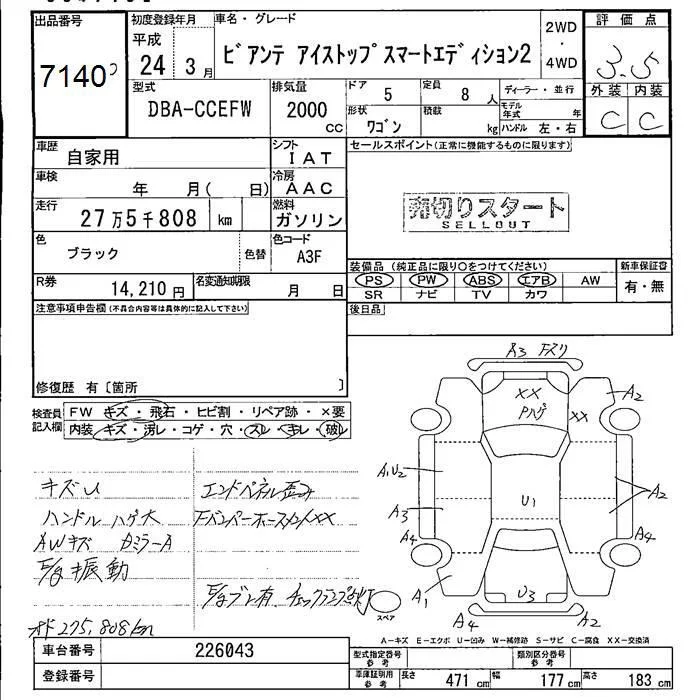 出品番号
7140
初度登録年月
平成
24 3月
車名・グレード
ビアンテ アイストップスマートエディション2
2WD
・
4WD
評価点
3.5
外装 内装
C C
型式
DBA-CCEFW
排気量
2000
cc
ドア 5
定員 8 人
形状 ワゴン
積載 kg
ディーラー・並行
モデル年式 年
ハンドル 左・右
車歴 自家用
シフト IAT
車検 年 月( 日)
冷房 AAC
走行 27万5千808 km
燃料 ガソリン
色 ブラック
色替
色コード A3F
R券 14,210円
名変通知期限 月 日
セールスポイント(正常に機能するものに限ります)
売切りスタート
SELLOUT
装備品(純正品に限り○をつけてください)
新車保証書
PS PW ABS エアB AW
SR ナビ TV カワ
有・無
後日品
注意事項申告欄(不具合内容等は具体的に記入して下さい)
修復歴 有〔箇所 〕
検査員記入欄
FW キズ・飛石・ヒビ割・リペア跡・×要
内装 キズ・汚レ・コゲ・穴・スレ・キレ・破レ
キズU
ハンドル ハゲ大
AWキズ カミラーA
E/g振動
オド275,808km
エンドパネル歪み
FバンパーホースメントXX
E/gブレ有、チェックランプ点灯
A3 Fスリ
XX
Pハゲ
XX
A2
A1U2
A3
A4
U1
A2
A4
A1
U3
A4
A2
スペア
A-キズ E-エクボ U-凹み W-補修跡 S-サビ C-腐食 XX-交換済
車台番号 226043
登録番号
型式指定番号 参考
類別区分番号 参考
車庫証明用 参考
長さ 471 cm 幅 177 cm 高さ 183 cm